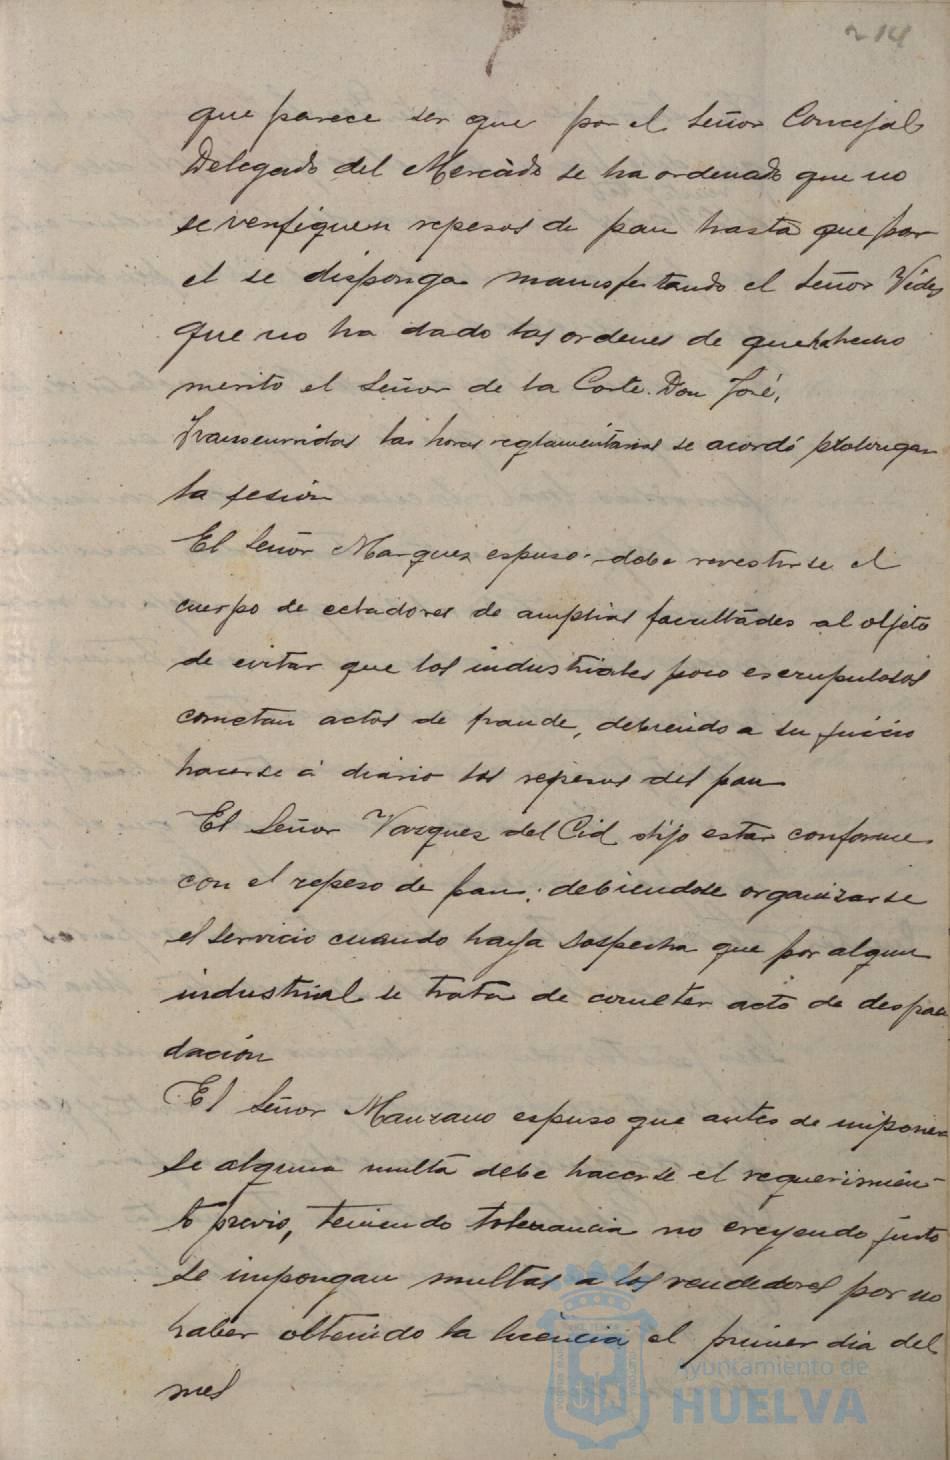 214
que parece ser que por el Señor Concejal
Delegado del Mercado se ha ordenado que no
se verifiquen repesos de pan hasta que por
el se disponga manifestando el Señor Vides
que no ha dado las ordenes de que ha hecho
merito el Señor de la Corte. Don José.
Transcurridas las horas reglamentarias se acordó prolongar
la sesión
El Señor Marquez espuso: debe revestirse el
cuerpo de celadores de amplias facultades al objeto
de evitar que los industriales poco escrupulosos
cometan actos de fraude, debiendo a su juicio
hacerse á diario los repesos del pan
El Señor Vazquez del Cid dijo estar conforme
con el repeso de pan: debiendose organizarse
el servicio cuando haya sospecha que por algun
industrial se trata de cometer acto de defrau
dación
El Señor Manzano espuso que antes de imponer
se alguna multa debe hacerse el requerimien-
to previo, teniendo tolerancia no creyendo justo
se impongan multas a los vendedores por no
haber obtenido la licencia el primer dia del
mes
Ayuntamiento de
HUELVA